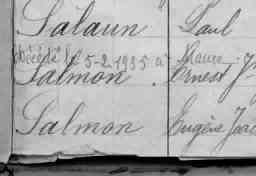 Salaun Paul
Décédé le 5-2-1935 à
Salmon. Ernest J
Salmon Eugène Jac